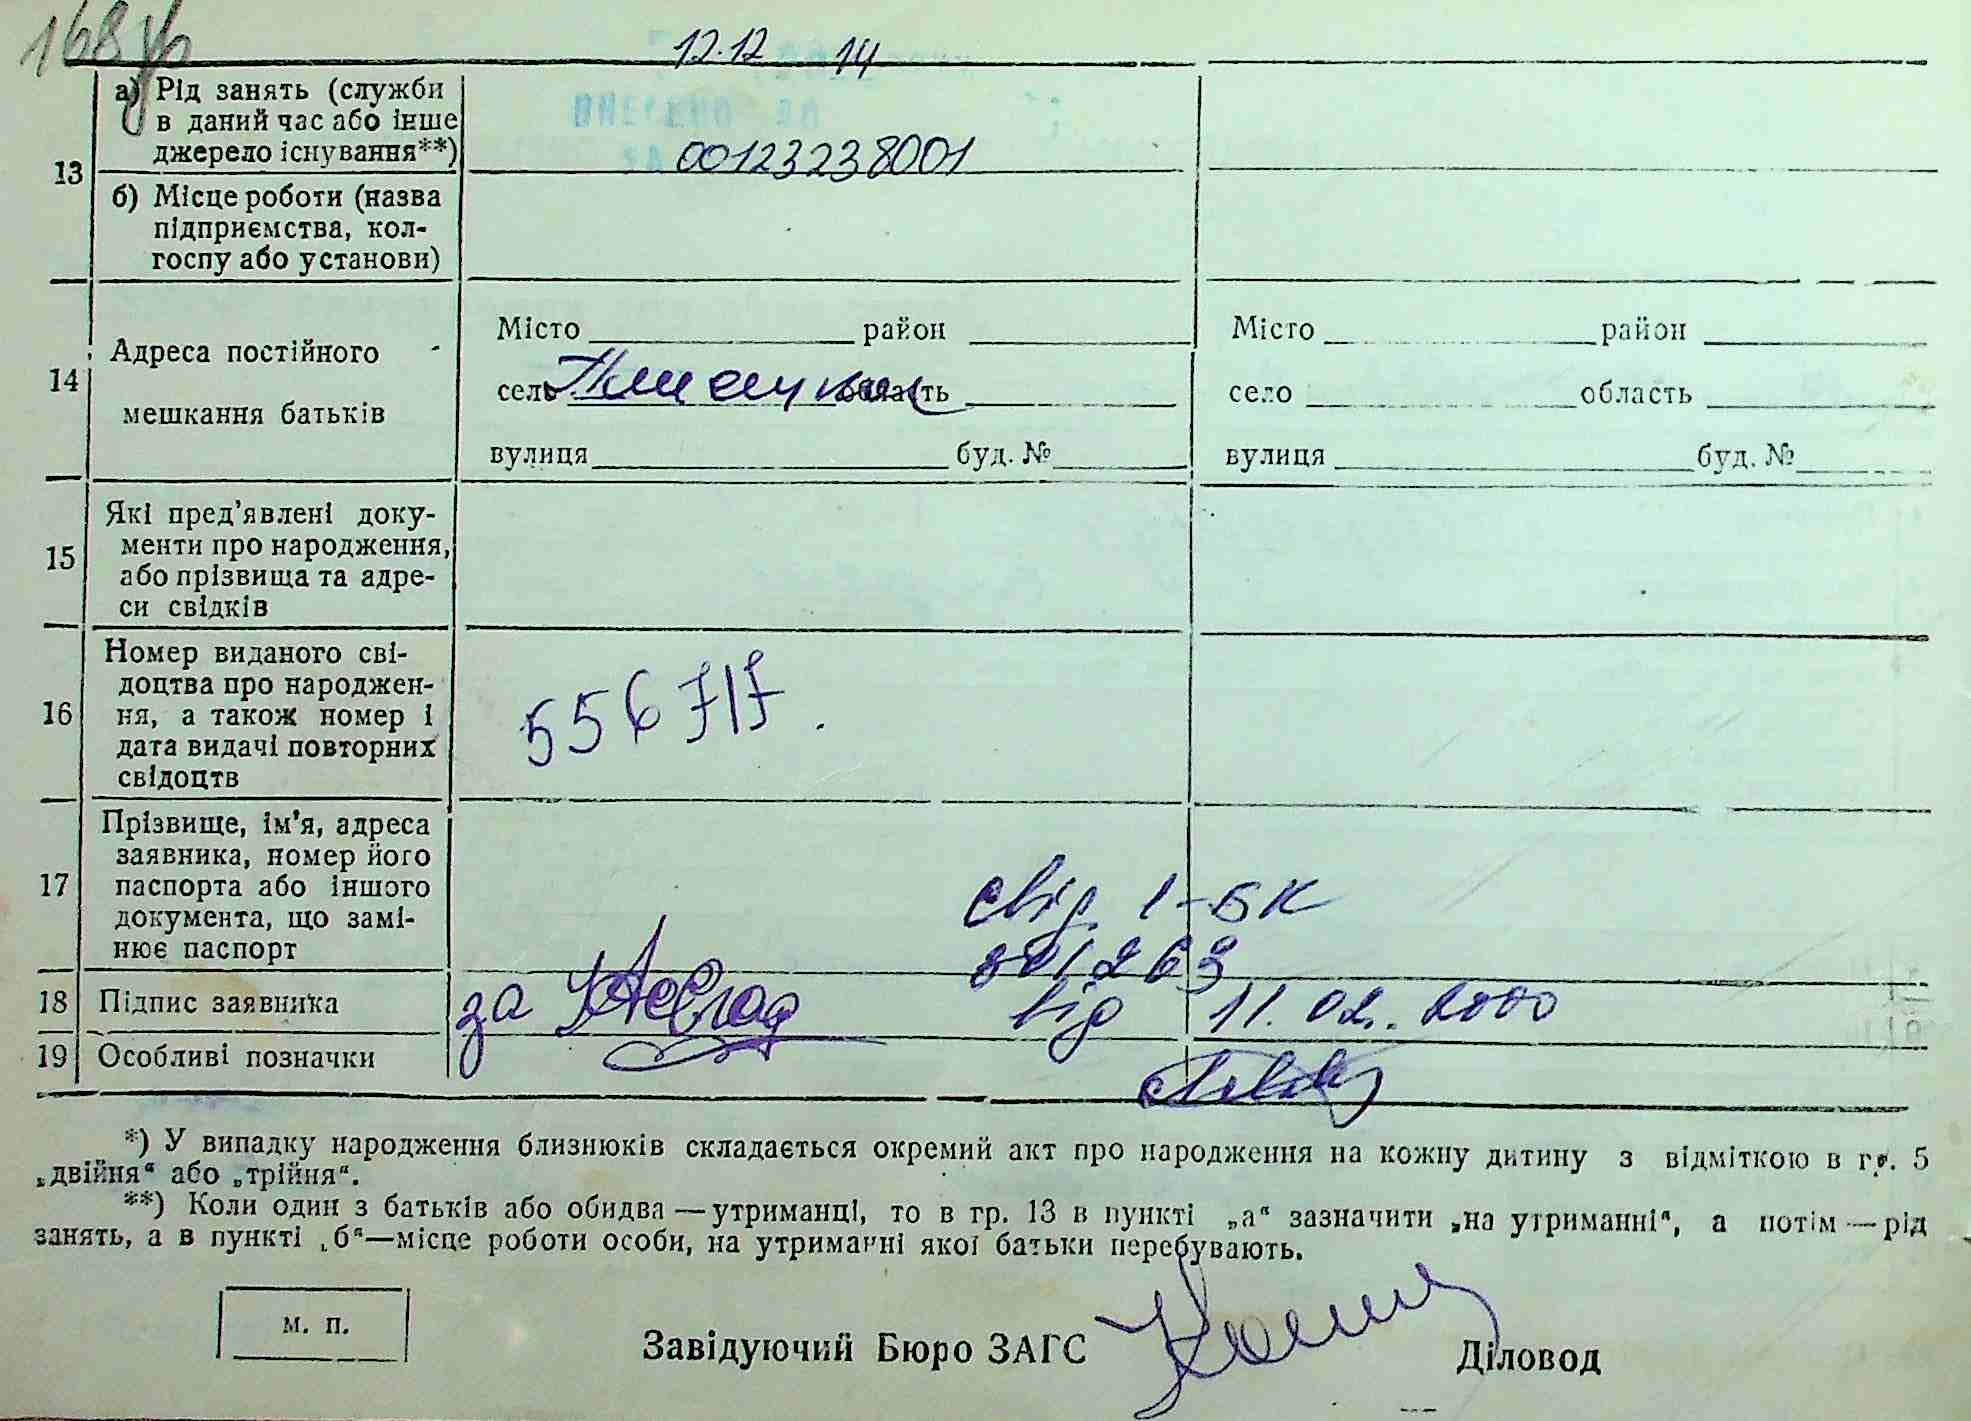 12.12 14
13
а) Рід занять (служби
в даний час або інше
джерело існування**)
00123238001
б) Місце роботи (назва
підприємства, кол-
госпу або установи)
14
Адреса постійного
мешкання батьків
Місто район
село область
вулиця буд. №
Місто район
село область
вулиця буд. №
15
Які пред’явлені доку-
менти про народження,
або прізвища та адре-
си свідків
16
Номер виданого сві-
доцтва про народжен-
ня, а також номер і
дата видачі повторних
свідоцтв
556717.
17
Прізвище, ім’я, адреса
заявника, номер його
паспорта або іншого
документа, що замі-
нює паспорт
свід 1-БК
від 11.02.2000
18 Підпис заявника
за
19 Особливі позначки
*) У випадку народження близнюків складається окремий акт про народження на кожну дитину з відміткою в гр. 5
„двійня“ або „трійня“.
**) Коли один з батьків або обидва — утриманці, то в гр. 13 в пункті „а“ зазначити „на утриманні“, а потім — рід
занять, а в пункті „б“—місце роботи особи, на утриманні якої батьки перебувають.
м. п.
Завідуючий Бюро ЗАГС
Діловод